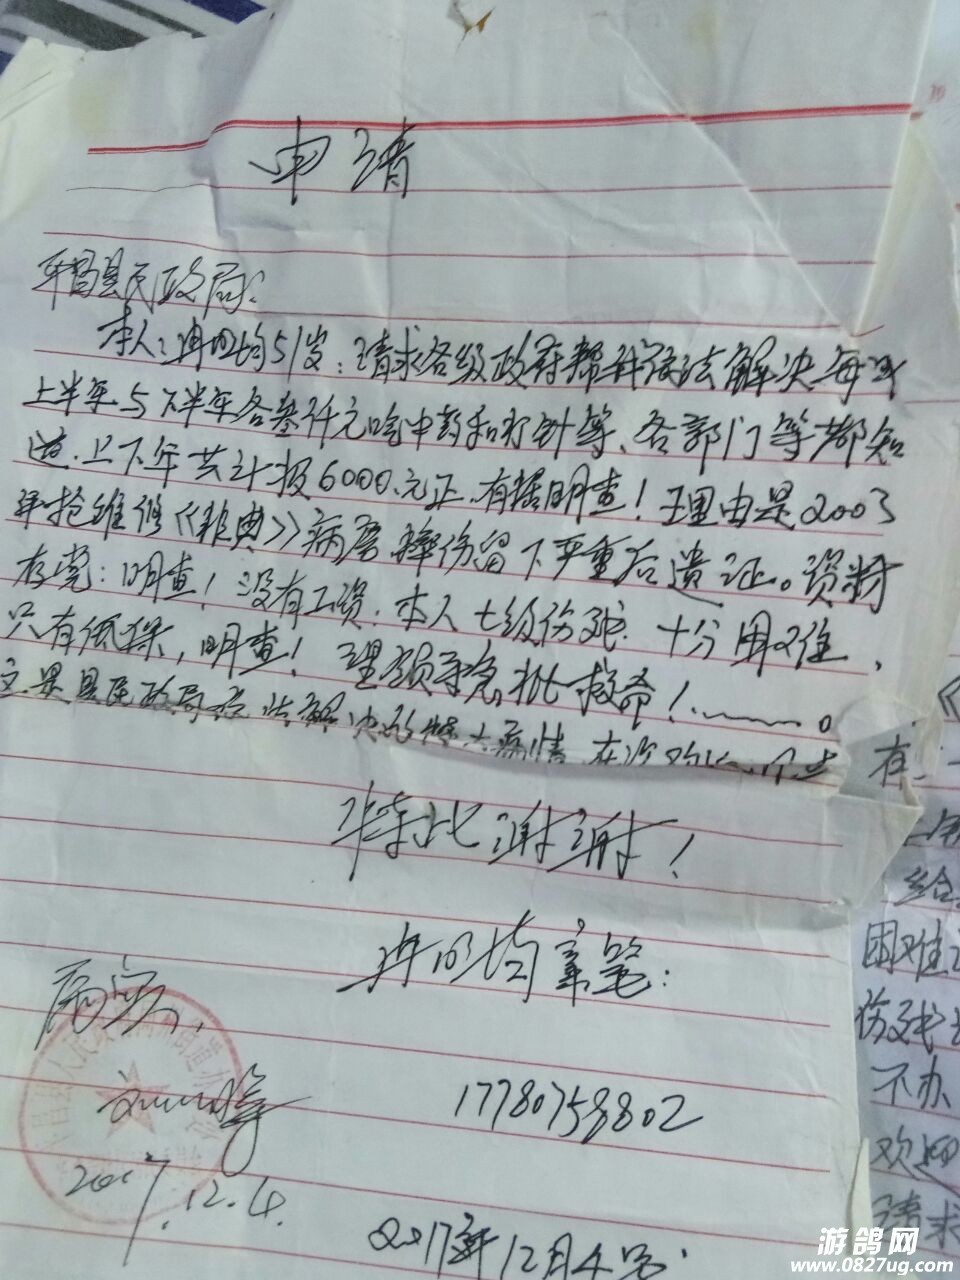 申请
平昌县民政局：
本人：冉明均51岁：请求各级政府帮我依法解决每年
上半年与下半年各叁仟元吃中药和打针等、各部门等都知
道.上下年共计报6000.元正.有据明查！理由是2003
年抢维修《非典》病房摔伤留下严重后遗证。资料
存党：明查！没有工资.本人七级伤残.十分困难,
只有低保，明查！望领导急批救命！……。
主.是县民政局依法解决的特大病情.在
特此谢谢！
冉明均亲笔：
属实,
2017.12.4.
17780758802
2017年12月4号.
有
给
困难
伤残
不办
欢迎
请求
游鸽网
www.0827ug.com